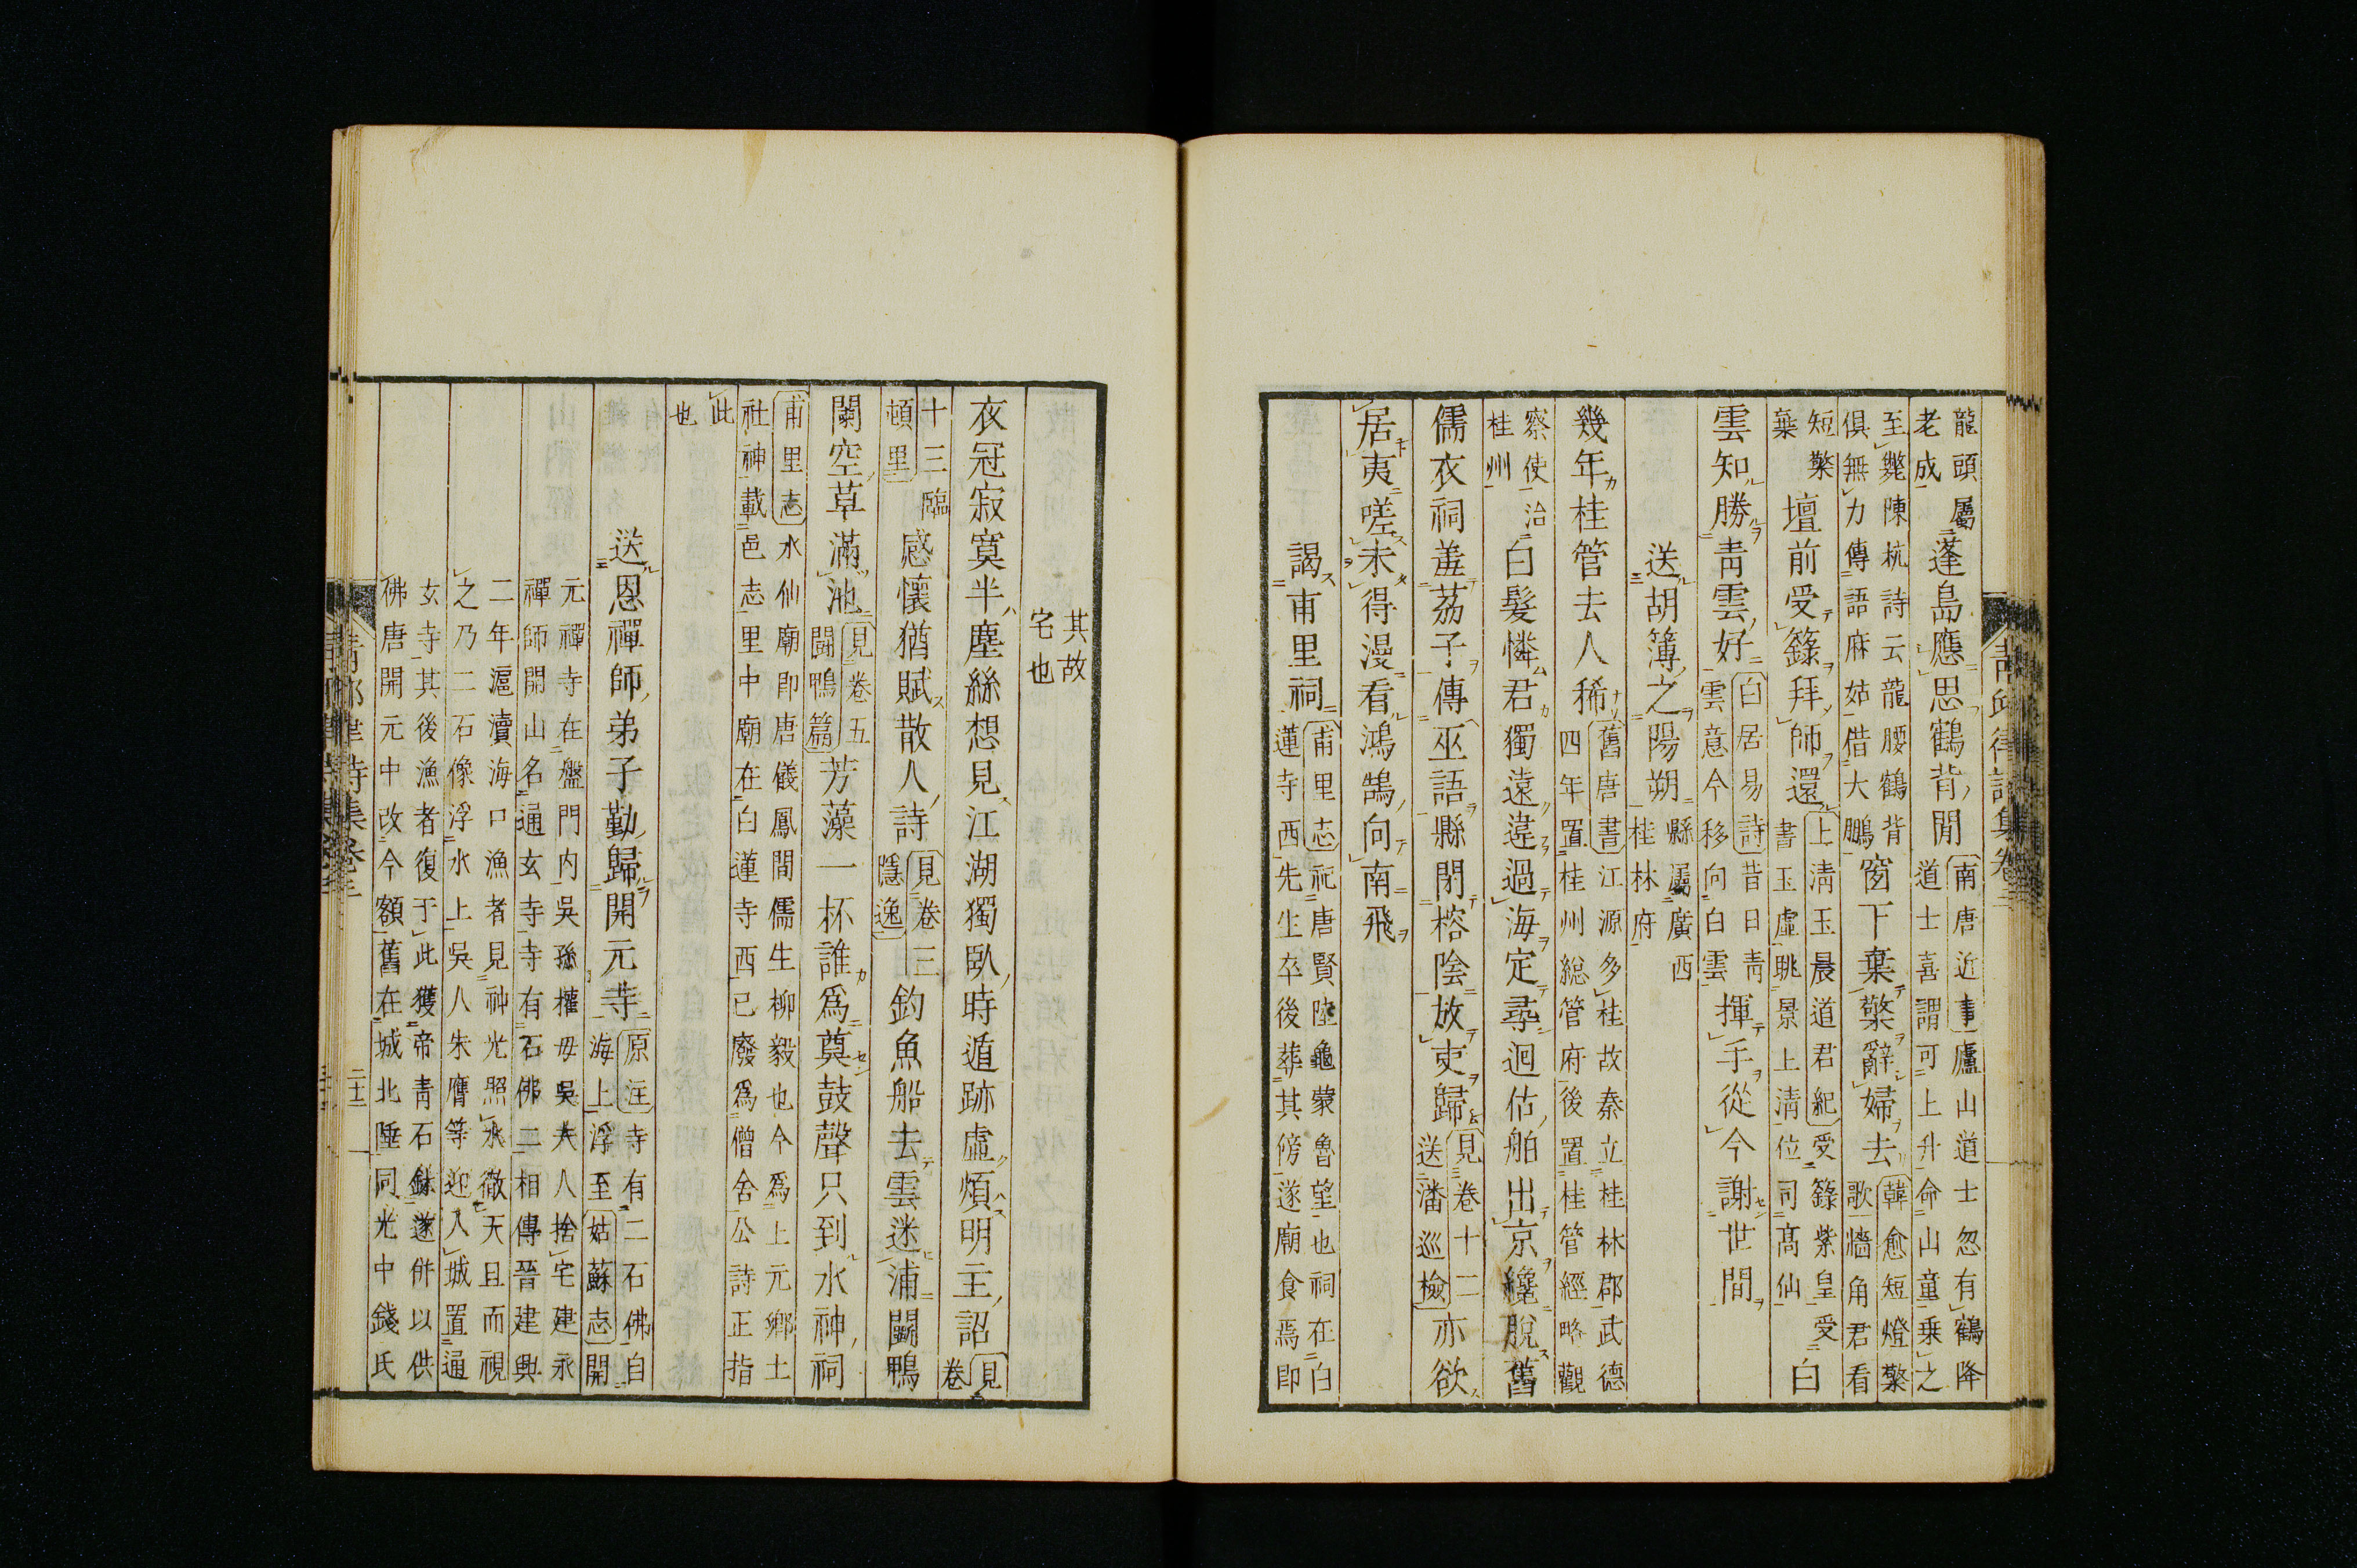 青邱律詩集卷三
龍頭屬老成蓬島應思鶴背閒南唐近事廬山道士忽有鶴降道士喜謂可上升命山童乘之
至斃陳杭詩云龍腰鶴背俱無力傳語麻姑借大鵬窗下棄檠辭婦去韓愈短燈檠歌牆角君看
短檠棄壇前受籙拜師還上清玉晨道君紀受籙紫皇受書玉虛眺景上清位司高仙白
雲知勝青雲好白居易詩昔日青雲意今移向白雲揮手從今謝世間
送胡簿之陽朔縣屬廣西桂林府
幾年桂管去人稀舊唐書江源多桂故秦立桂林郡武德四年置桂州総管府後置桂管經略觀
察使治桂州白髮憐君獨遠違過海定尋迴估舶出京纔脫舊
儒衣祠羞荔子傳巫語縣閉榕陰放吏歸見卷十二送潘巡檢亦欲
居夷嗟未得漫看鴻鵠向南飛
謁甫里祠甫里志祀唐賢陸龜蒙魯望也祠在白蓮寺西先生卒後葬其傍遂廟食焉即
其故宅也
衣冠寂寞半塵絲想見江湖獨臥時遁跡虛煩明主詔見卷
十三臨頓里感懷猶賦散人詩見卷三隱逸釣魚船去雲迷浦鬭鴨
闌空草滿池見卷五鬭鴨篇芳藻一杯誰為奠鼓聲只到水神祠
甫里志水仙廟即唐儀鳳間儒生柳毅也今為上元鄉土社神載邑志里中廟在白蓮寺西已廢為僧舍公詩正指
此也
送恩禪師弟子勤歸開元寺原注寺有二石佛自海上浮至姑蘇志開
元禪寺在盤門內吳孫權母吳夫人捨宅建永禪師開山名通玄寺寺有石佛二相傳晉建興
二年滬瀆海口漁者見神光照水徹天且而視之乃二石像浮水上吳人朱膺等迎入城置通
玄寺其後漁者復于此獲帝青石鉢遂併以供佛唐開元中改今額舊在城北陲同光中錢氏